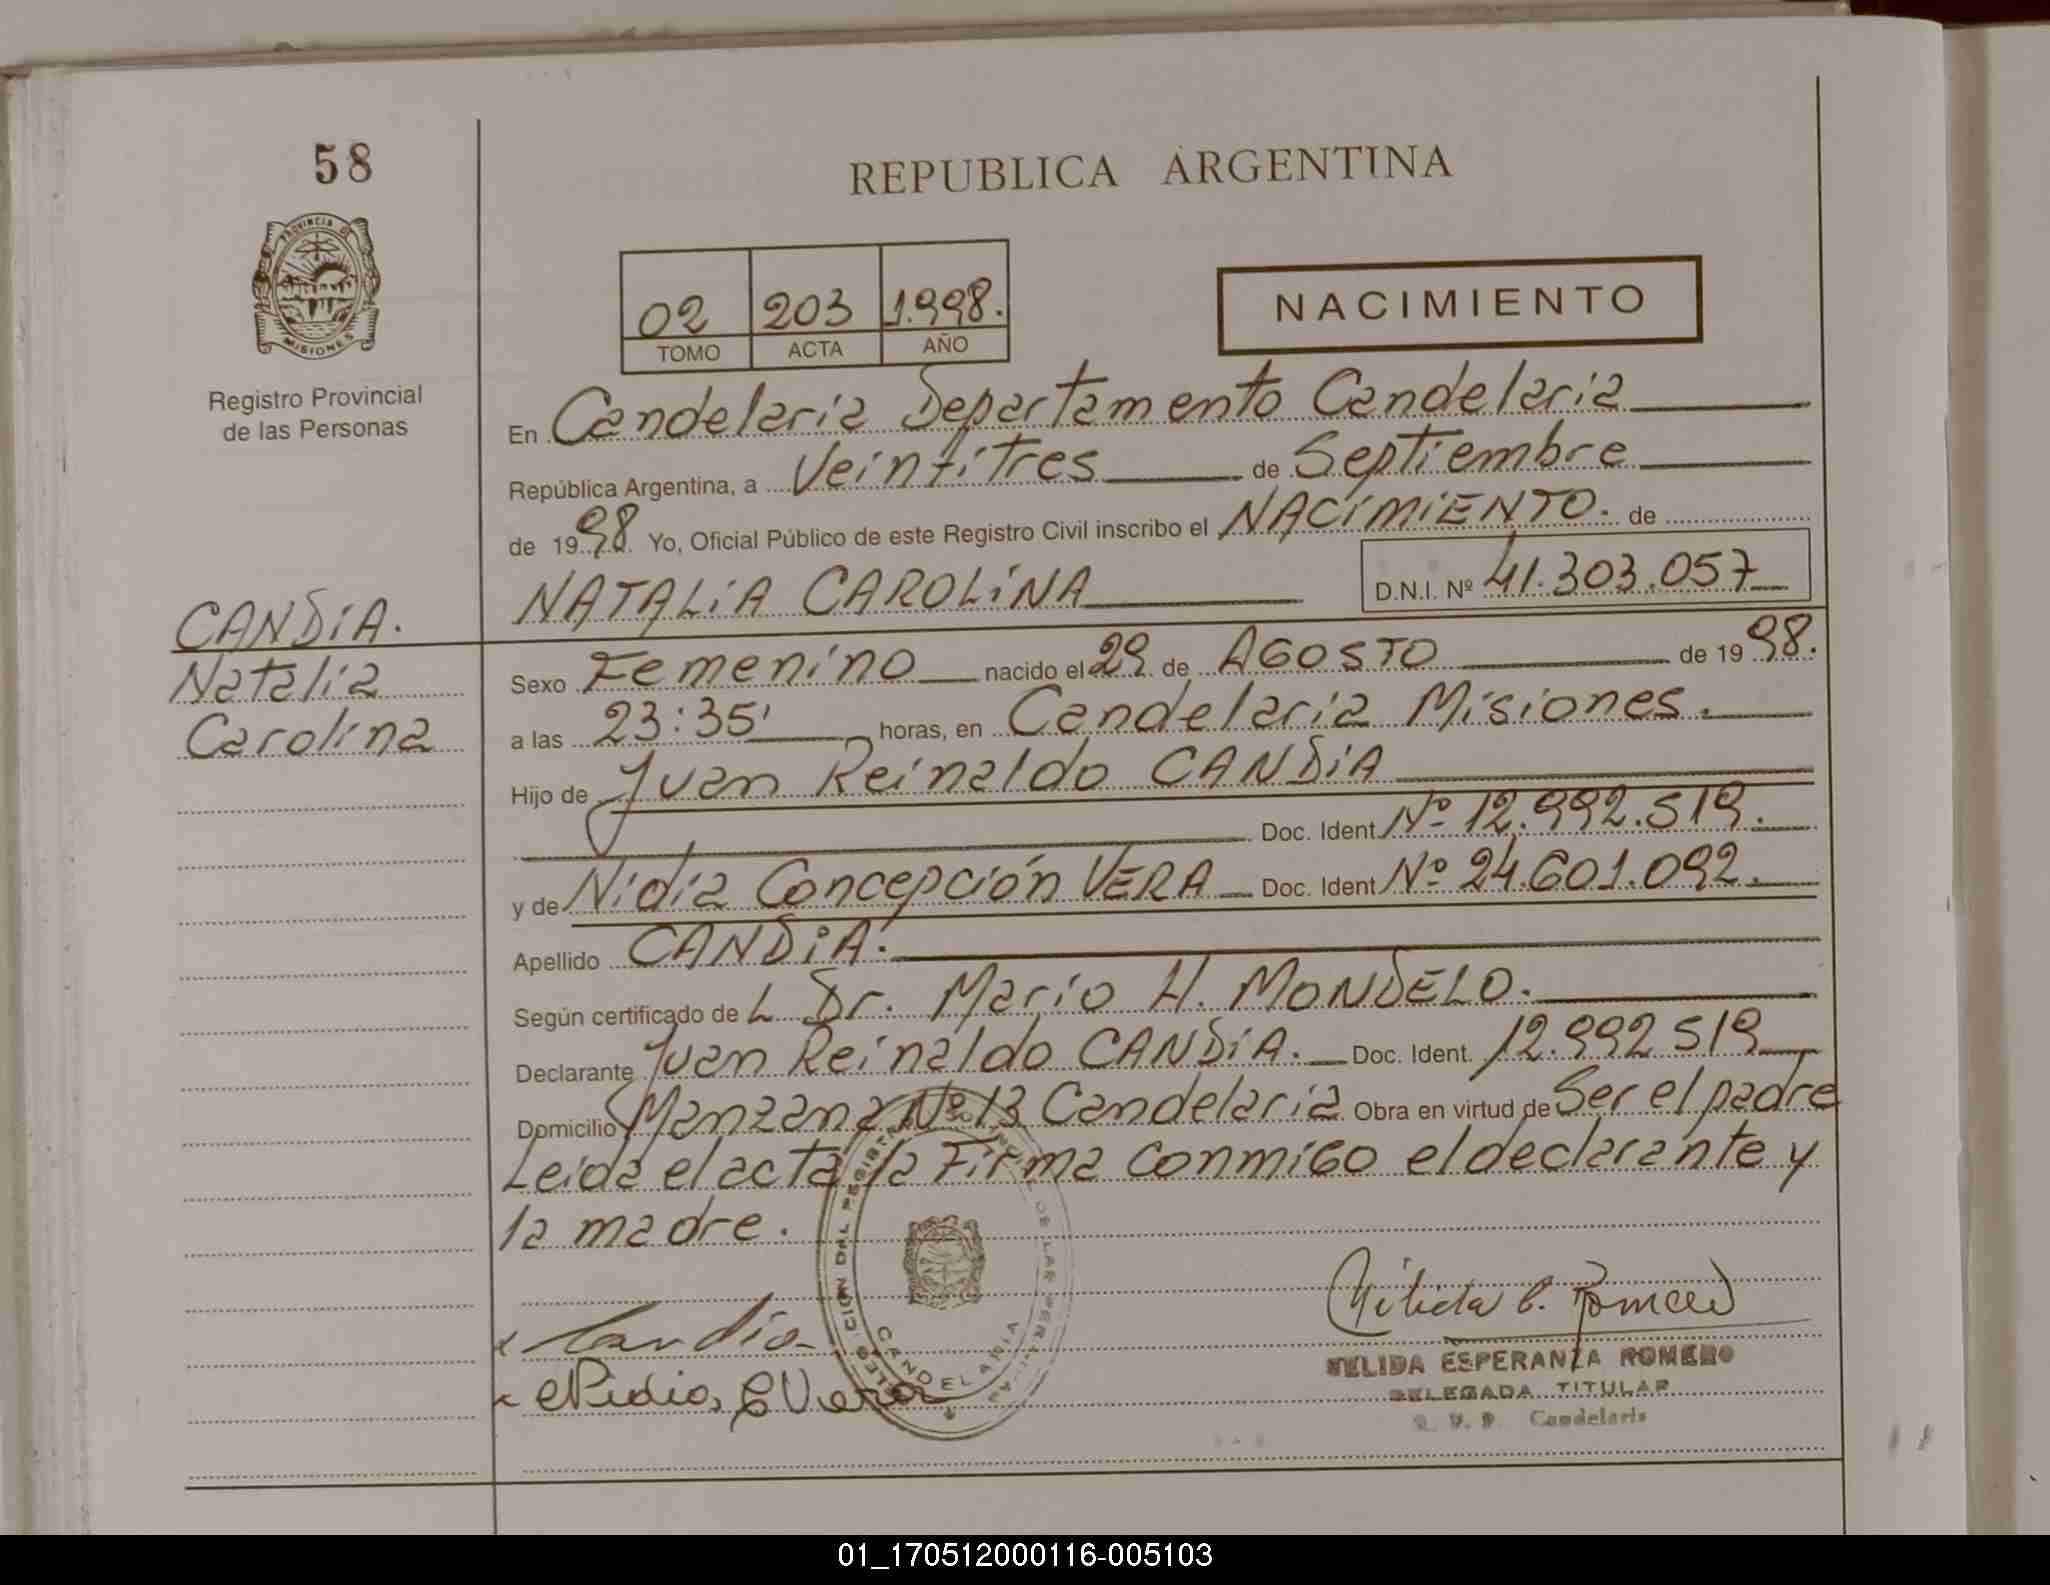 58
REPUBLICA ARGENTINA
PROVINCIA DE
MISIONES
Registro Provincial
de las Personas
02 203 1.998.
TOMO ACTA AÑO
NACIMIENTO
En Candelaria Departamento Candelaria
República Argentina, a Veintitres de Septiembre
de 1998. Yo, Oficial Público de este Registro Civil inscribo el NACIMIENTO. de
NATALIA CAROLINA D.N.I. Nº 41.303.057
CANDIA.
Natalia
Carolina
Sexo Femenino nacido el 29 de AGOSTO de 1998.
a las 23:35' horas, en Candelaria Misiones.
Hijo de Juan Reinaldo CANDIA
Doc. Ident Nº 12.992.519.
y de Nidia Concepción VERA Doc. Ident Nº 24.601.092.
Apellido CANDIA.
Según certificado de L Dr. Mario H. MONDELO.
Declarante Juan Reinaldo CANDIA. Doc. Ident. 12.992519
Domicilio Manzana Nº 13 Candelaria Obra en virtud de Ser el padre
Leida el acta la Firma conmigo el declarante y
la madre.
Candia
Nidia, C Vera
CANDELARIA
Nélida E. Romero
NELIDA ESPERANZA ROMERO
DELEGADA TITULAR
Candelaria
01_170512000116-005103